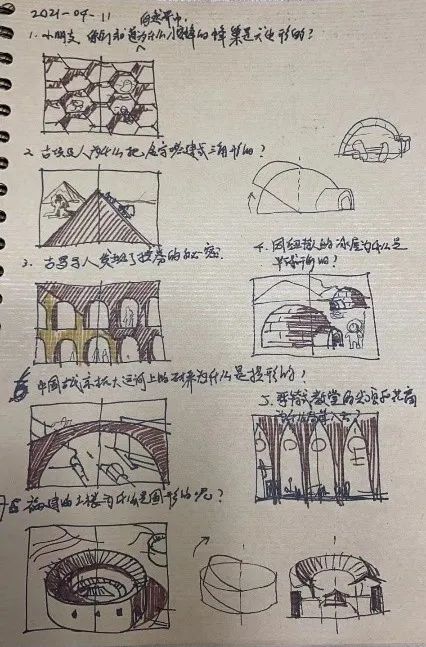 2021-09-11
自然界中,
1. 小朋友 你们知道为什么小蜜蜂的蜂巢是六边形的?
2. 古埃及人为什么把金字塔建成三角形的?
3. 古罗马人发现了拱券的秘密.
4. 因纽特人的冰屋为什么是
半球形的?
中国古代京杭大运河上的桥为什么是拱形的?
5. 哥特教堂的尖顶的花窗
福建的土楼为什么是圆形的呢?